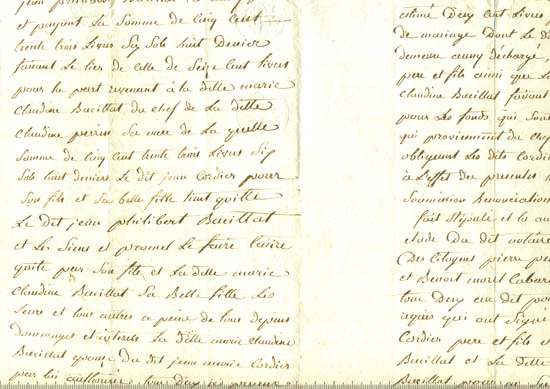 et payant La Somme de Cinq cent
trente trois Livres Six Sols huit Denier
faisant Le tier de Celle de Seize Cent Livres
pour la part revenant à la ditte marie
Claudine Bacillat du chef de La ditte
Claudine perrin Sa mere de La quelle
Somme de Cinq cent trente trois Livres Six
Sols huit deniers Le dit jean Cordier pour
Son fils et Sa belle fille tient quitte
Le dit jean philibert Bacillat
et Les Siens et promet Le faire tenir
quitte par Son fils et La ditte marie
Claudine Bacillat Sa Belle fille Les
Leurs et tous autres a peine de tous depens
Dommages et interets La ditte marie claudine
Bacillat epouse du dit jean marie Cordier
par lui authorisée
estimé Deux cent Livres
de mariage Dont Le di
demeure aussy déchargé,
pere et fils ainsi que La
Claudine Bacillat faisant
pour Les fonds qui Sont
qui proviennent du chef
obligeant Les dits Cordier
à L'effet du presentes
Soumission Renonciation
fait Stipulé et
etude Du dit notaire
Des Citoyens pierre
et Benoit morel Cabare
tous Deux
requis qui ont Signé
Cordier pere et fils et
Bacillat et La ditte
Bacillat pour